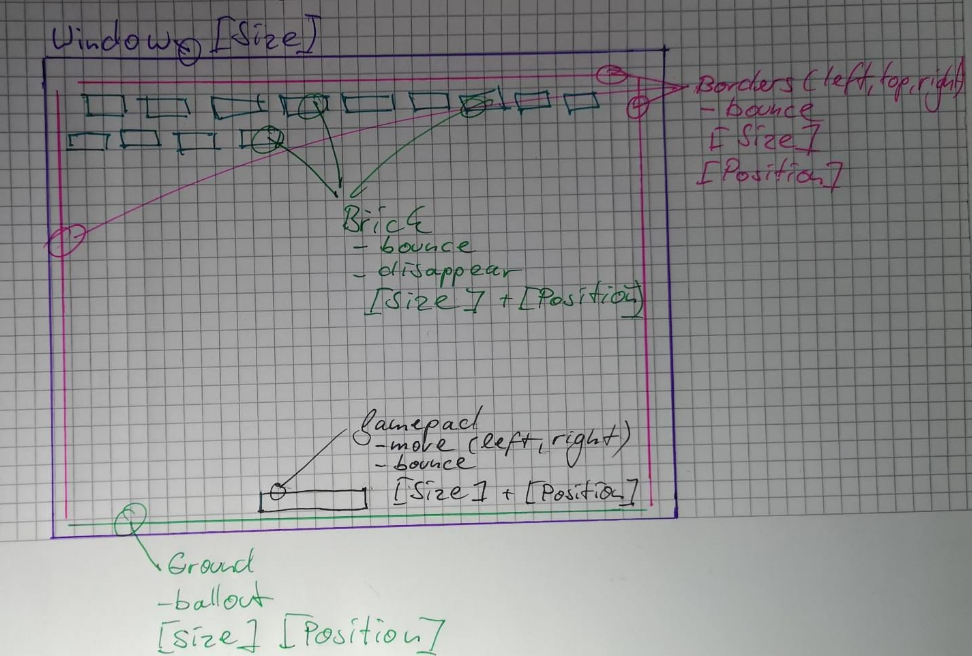 Window [Size]
Borders (left, top, right)
- bounce
[Size]
[Position]
Brick
- bounce
- disappear
[Size] + [Position]
Gamepad
- move (left, right)
- bounce
[Size] + [Position]
Ground
- ballout
[Size] [Position]